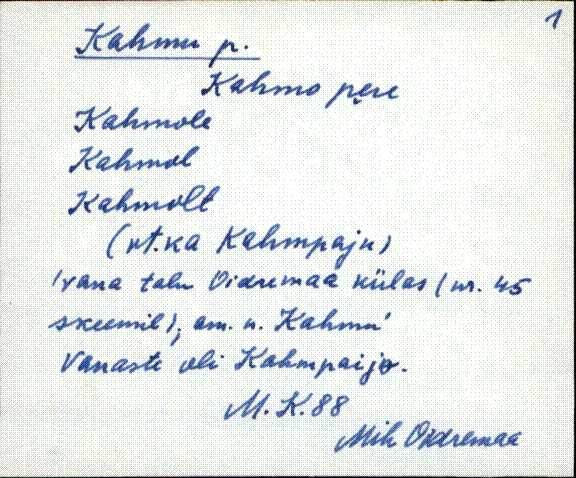 1
Kahmu p.
Kahmo pere
Kahmole
Kahmol
Kahmolt
(vt.ka Kahmpaju)
Vana talu Oidremaa külas (nr. 45
skeemil), am. n. Kahmu'
Vanaste oli Kahmpaijo.
M. K. 88
Mih Oidremaa